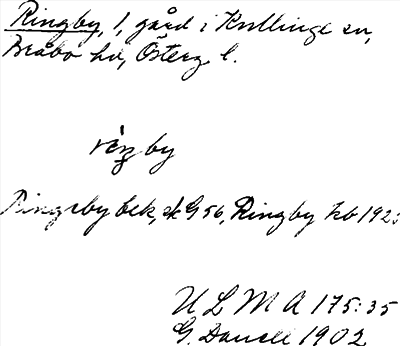 Ringby, 1, gård i Kullinge sn,
Bråbo hd, Österg l.
ring by
Ringeby bek, ek G 56, Ringby kb 192
U L M A 175:35
G. Danell 1902